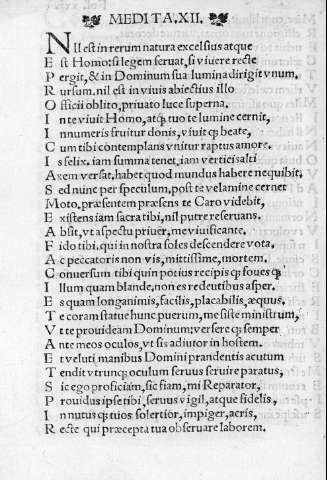 MEDITA.XII.
NIl est in rerum natura excelsius atque
Est Homo: si legem seruat, si viuere recte
Pergit, & in Dominum sua lumina dirigit vnum.
Rursum. nil est in viuis abiectius illo
Officii oblito, priuato luce superna.
In te viuit Homo, atq; tuo te lumine cernit,
Innumeris fruitur donis, viuit q; beate,
Cum tibi contemplans vnitur raptus amore.
Is felix. iam summa tenet. iam vertici salti
Axem versat, habet quod mundus habere nequibit.
Sed nunc per speculum, post te velamine cernet
Moto, præsentem præsens te Caro videbit,
Existens iam sacra tibi, nil putre reseruans.
Absit, vt aspectu priuer, me viuificante.
Fido tibi. qui in nostra soles descendere vota.
Ac peccatoris non vis, mittissime, mortem.
Conuersum tibi quin potius recipis q; foues q;
Illum quam blande, non es redeutibus asper.
Es quam longanimis, facilis, placabilis, æquus.
Te coram statue hunc puerum, me siste ministrum,
Vt te prouideam Dominum: verser e q; semper
Ante meos oculos, vt sis adiutor in hostem.
Et veluti manibus Domini prandentis acutum
Tendit vtrunq; oculum seruus seruire paratus,
Sic ego proficiam, sic fiam, mi Reparator.
Prouidus ipse tibi, seruus vigil, atque fidelis,
In nutus q; tuos solertior, impiger, acris,
Recte qui præcepta tua obseruare laborem.